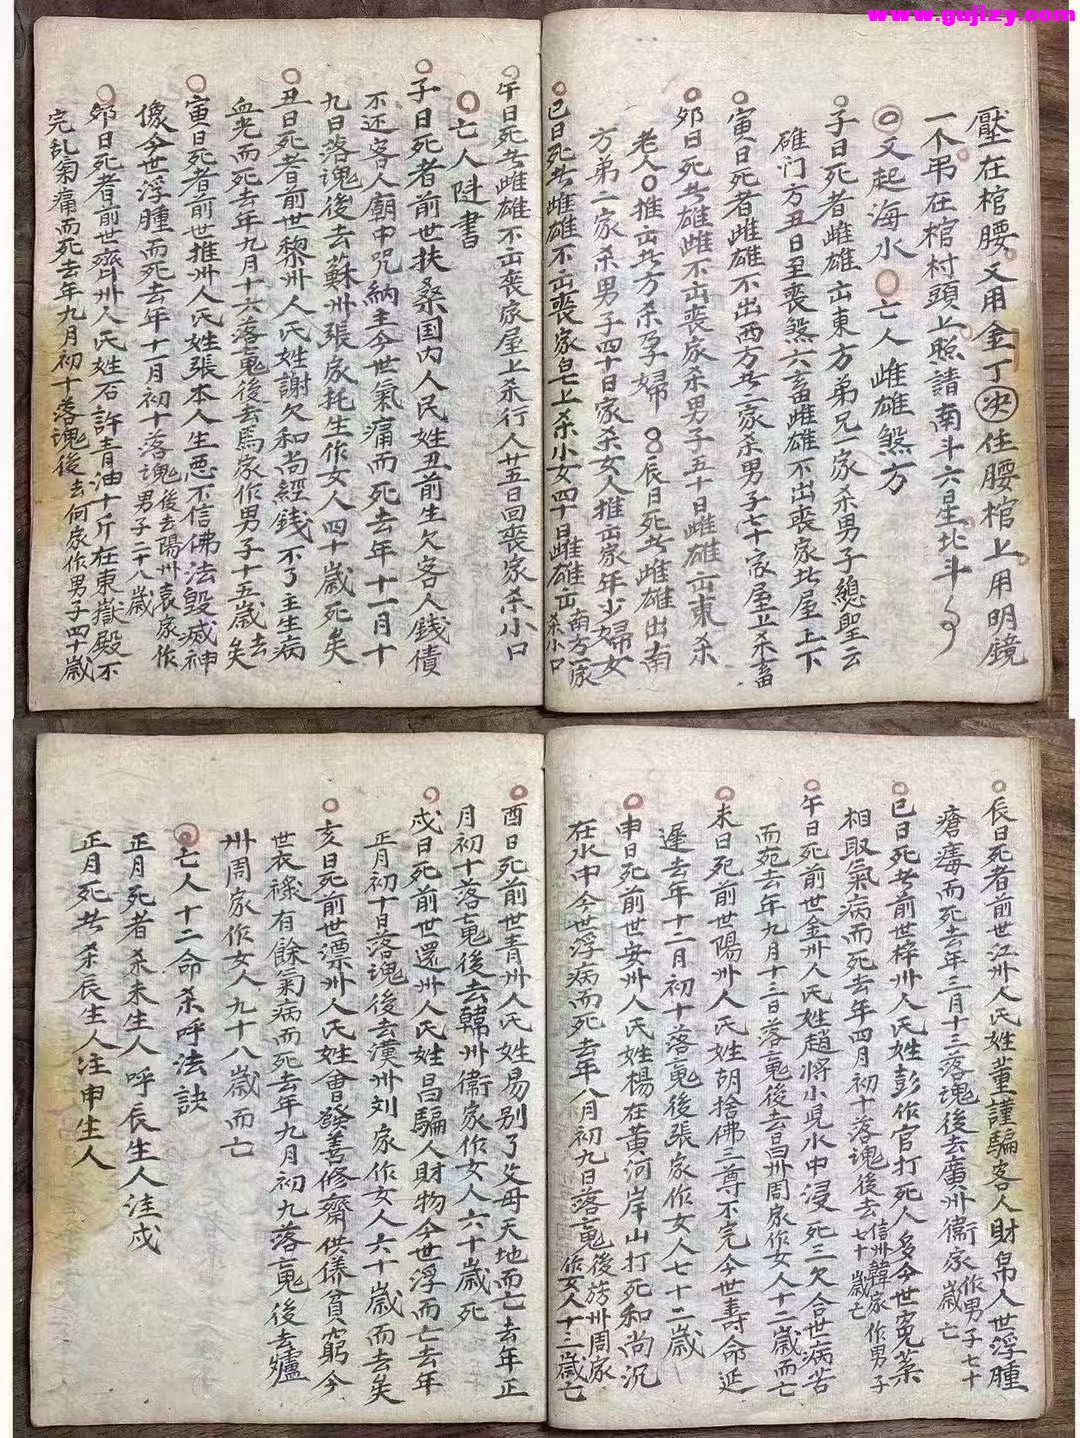 www.gujizy.com
壓在棺腰又用金丁決住腰棺上用明鏡
一个吊在棺村頭上照請南斗六星北斗
又起海水 亡人雌雄煞方
子日死者雌雄出東方弟兄一家杀男子總聖云
碓门方丑日至喪煞六畜雌雄不出喪家北屋上下
寅日死者雌雄不出西方共二家杀男子七十家屋上杀畜
夘日死者雄雌不出喪家杀男子五十日雌雄出東杀
老人推出共方杀孕婦 辰日死者雌雄出南
方弟二家杀男子四十日家杀女人推出家年少婦女
巳日死者雌雄不出喪家皂上杀小女四十日雌雄出南方一家杀小口
午日死者雌雄不出喪家屋上杀行人廿五日回喪家杀小口
亡人書
子日死者前世扶桑国内人民姓丑前生欠客人錢債
不还客人廟中咒納主今世氣痛而死去年十一月十
九日落魂後去蘇州張家托生作女人四十歲死矣
丑日死者前世黎州人氏姓謝欠和尚經錢不了主生病
血光而死去年九月十六落䰟後去馬家作男子十五歲去矣
寅日死者前世推州人氏姓張本人生悪不信佛法毀滅神
像今世浮腫而死去年十一月初十落魂後去陽州袁家作男子二十八歲
夘日死者前世齊州人氏姓石許青油十斤在東嶽殿不
完乱氣痛而死去年九月初十落魂後去何家作男子四十歲
辰日死者前世江州人氏姓董謹騙客人財帛人世浮腫
瘡毒而死去年三月十三落魂後去廣州衞家作男子七十歲亡
巳日死者前世梓州人氏姓彭作官打死人多今世冤業
相取氣病而死去年四月初十落魂後去信州韓家作男子七十歲亡
午日死前世金州人氏姓趙將小児水中浸死三欠合世病苦
而死去年九月十三日落䰟後去昌州周家作女人十二歲而亡
未日死前世陽州人氏姓胡捨佛三尊不完今世寿命延
遲去年十二月初十落䰟後張家作女人七十二歲
申日死前世安州人氏姓楊在黄河岸山打死和尚沉
在水中今世浮病而死去年八月初九日落䰟後州周家作女人十三歲亡
酉日死前世青州人氏姓易别了父母天地而亡去年正
月初十落䰟後去韓州衞家作女人六十歲死
戍日死前世還州人氏姓昌騙人財物今世浮而亡去年
正月初十日落魂後去漢州刘家作女人六十歲而去矣
亥日死前世漂州人氏姓會發善修齋供僐貧窮今
世衣禄有餘氣病而死去年九月初九落䰟後去爐
州周家作女人九十八歲而亡
亡人十二命杀呼法訣
正月死者杀未生人呼辰生人注戍
正月死者杀辰生人注申生人